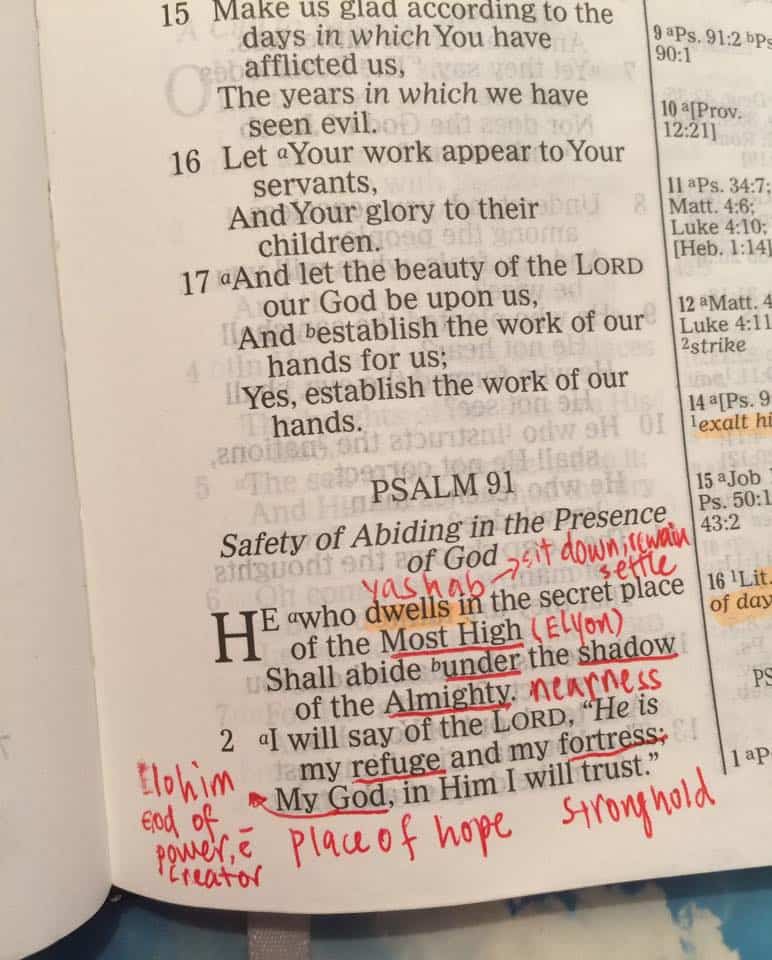 15 Make us glad according to the
days in which You have
afflicted us,
The years in which we have
seen evil.
16 Let aYour work appear to Your
servants,
And Your glory to their
children.
17 aAnd let the beauty of the LORD
our God be upon us,
And bestablish the work of our
hands for us;
Yes, establish the work of our
hands.
PSALM 91
Safety of Abiding in the Presence
of God
yashab → sit down, remain
settle
HE awho dwells in the secret place
of the Most High (Elyon)
Shall abide bunder the shadow
of the Almighty. nearness
2 aI will say of the LORD, "He is
my refuge and my fortress;
My God, in Him I will trust."
place of hope stronghold
Elohim
God of
power,
creator
9 aPs. 91:2 bPs
90:1
10 a[Prov.
12:21]
11 aPs. 34:7;
Matt. 4:6;
Luke 4:10;
[Heb. 1:14]
12 aMatt. 4
Luke 4:11
2strike
14 a[Ps. 9
1exalt hi
15 aJob
Ps. 50:1
43:2
16 1Lit.
of day
PS
1 aP